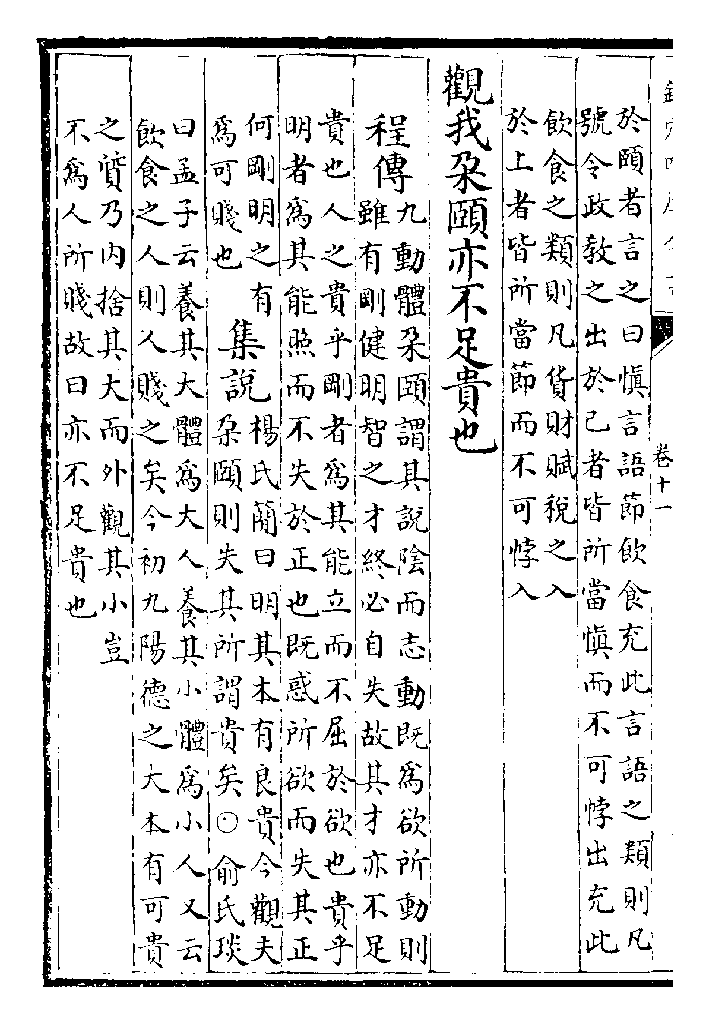 卷十一
於頤者言之曰慎言語節飲食充此言語之類則凡
號令政教之出於己者皆所當慎而不可悖出充此
飲食之類則凡貨財賦稅之入
於上者皆所當節而不可悖入
觀我朶頤亦不足貴也
程傳九動體朶頤謂其說陰而志動既為欲所動則
雖有剛健明智之才終必自失故其才亦不足
貴也人之貴乎剛者為其能立而不屈於欲也貴乎
明者為其能照而不失於正也既惑所欲而失其正
何剛明之有
為可賤也
集說楊氏簡曰明其本有良貴今觀夫
朶頤則失其所謂貴矣○俞氏琰
曰孟子云養其大體為大人養其小體為小人又云
飲食之人則人賤之矣今初九陽德之大本有可貴
之質乃内捨其大而外觀其小豈
不為人所賤故曰亦不足貴也